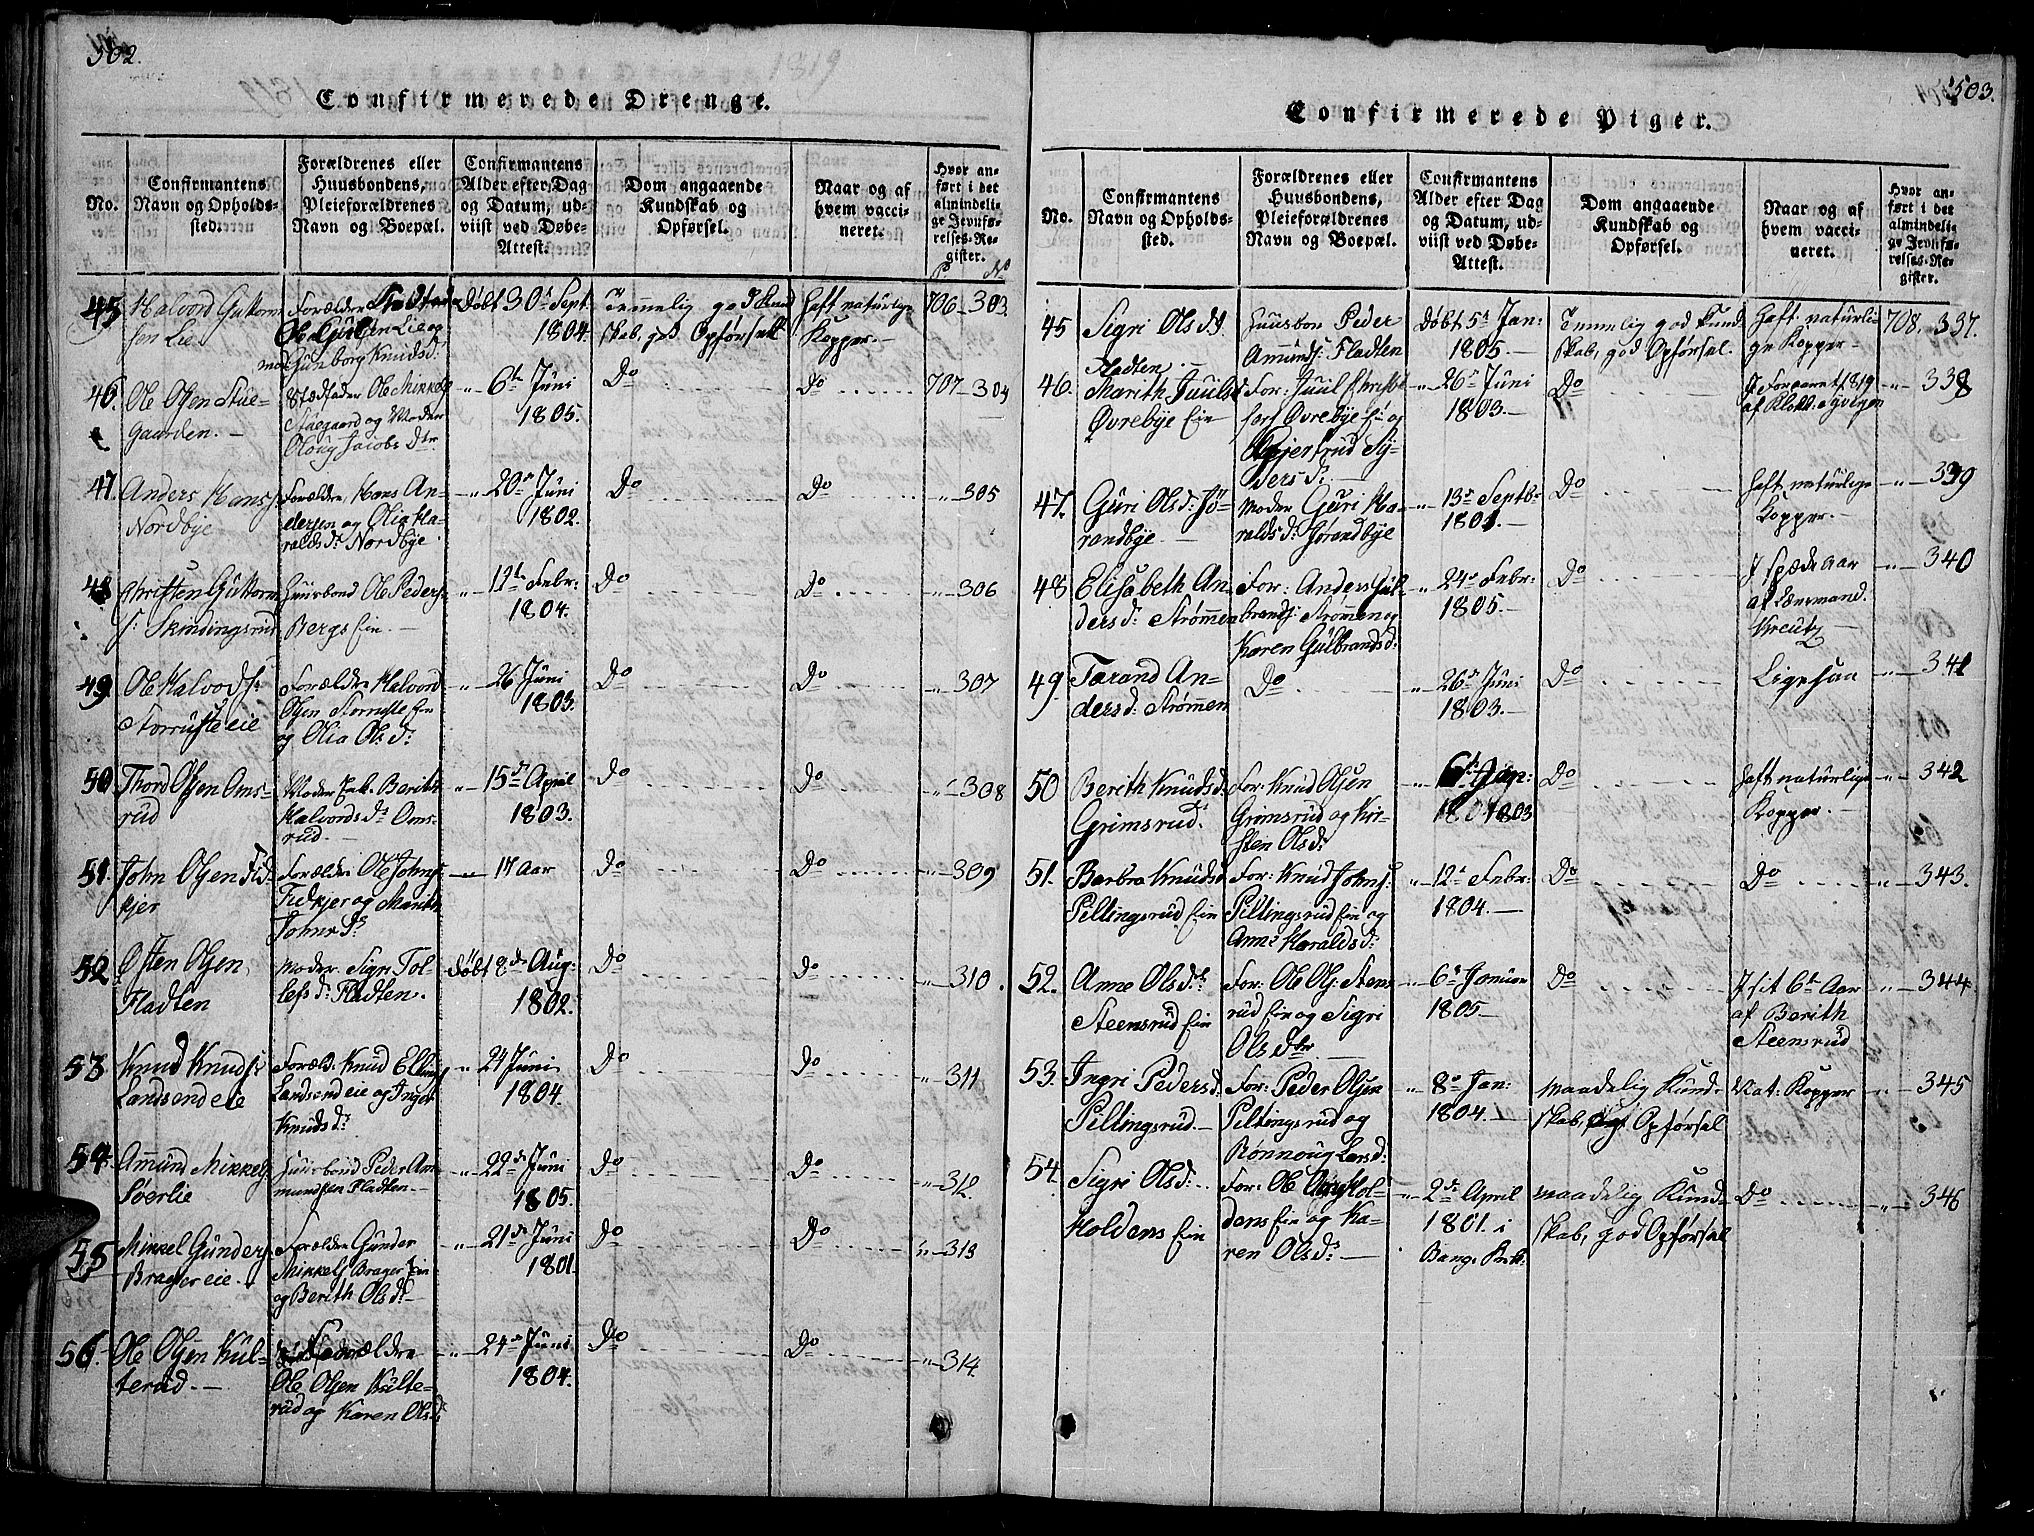 502.
1819
Confirmerede Drenge.
No.
Confirmantens
Navn og Opholds-
sted.
Forældrenes eller
Huusbondens,
Pleieforældrenes
Navn og Boepæl.
Confirmantens
Alder efter Dag
og Datum, ud-
viist ved Døbe-
Attest.
Dom angaaende
Kundskab og
Opførsel.
Naar og af
hvem vacci-
neret.
Hvor an-
ført i det
almindeli-
ge Jevnfø-
relses-Re-
gister.
P. No
45 Halvord Guttorm
sen Lie
Forældre
Lie og
Gunborg Knudsd.
Døbt 30d Sept.
1804.
Temmelig god Kund
skab, god Opførsel
Haft naturlige
Kopper.
706 - 303.
46. Ole Olsen Stue-
gaarden. -
Stedfader Ole Mikkels
Stuegaard og Moder
Oloug Jacobs Dtr
" 6te Juni
1805.
Do
Do
707 - 304
47. Anders Hans.
Nordbye
Forældre, Hans An-
dersen og Olia Ha-
raldsd: Nordbye
" 20de Juni
1802.
Do
Do
" - 305
48 Christen Guttorm
s: Skindingsrud
Huusbond Ole Peders
Bergs Eie. -
" 12te Febr:
1804.
Do
Do
" - 306
49 Ole Halvords:
Storruste eie
Forældre Halvord
Olsen Storruste Eie
og Olia Olsd:
" 26 Juni
1803.
Do
Do
" 307
50 Thord Olsen Oms-
rud
Moder Enk. Berith
Halvordsd: Oms-
rud. -
" 15de April
1803.
Do
Do
" 308
51. John Olsen Fid-
kjer
Forældre Ole Johns
Fidkjer og Marith
Johnsd:
" 17 Aar
Do
Do
" 309
52 Østen Olsen
Fladten
Moder. Sigri Tol-
lefsd: Fladten.
Døbt 8de Aug:
1802.
Do
Do
" 310.
53 Knud Knuds:
Landsend eie
Foræld. Knud Ellings
Landsend eie og Inger
Knudsd:
" 24 Juni
1804.
Do
Do
" 311
54 Amund Mikkels
Søerlie
Huusbond Peder Am
mundsen Fladten. -
" 22de Juni
1805.
Do
Do
" 312.
55 Mikkel Gunders
Brager eie. -
Forældre Gunder
Mikkels Brager Eie
og Berith Olsd:
" 21de Juni
1801.
Do
Do
" 313
56. Ole Olsen Kul-
terud. -
Forældre
Ole Olsen Kulte-
rud og Karen Olsd:
" 24de Juni
1804.
Do
Do
" 314.
503.
Confirmerede Piger.
No.
Confirmantens
Navn og Opholds-
sted.
Forældrenes eller
Huusbondens,
Pleieforældrenes
Navn og Boepæl.
Confirmantens
Alder efter Dag
og Datum, ud-
viist ved Døbe-
Attest.
Dom angaaende
Kundskab og
Opførsel.
Naar og af
hvem vacci-
neret.
Hvor an-
ført i det
almindeli-
ge Jevnfø-
relses-Re-
gister.
45 Sigri Olsd.
Fladten. -
Huusbon Peder
Ammunds: Fladten
Døbt 5t Jan:
1805. -
Temmelig god Kund
skab, god Opførsel.
Haft naturli-
ge Kopper -
708. 337.
46. Marith Juulsd
Øvrebye Eie
For: Juul
Øvrebye Ei og
" 26de Juni
1803. -
Do
" 338
47. Guri Olsd: Jø-
randbye -
Moder Guri Ha-
raldsd: Jørandbye
" 13de Septb-
1801. -
Do
Haft naturlige
Kopper. -
" 339
48 Elisabeth An-
dersd: Strømmen
For: Anders Gul-
brands: Strømmen og
Karen Gulbrandsd:
" 24de Febr:
1805. -
Do
I spæde aar
af Lænsmand.
Kreutz -
" 340
49. Tarand An-
dersd: Strømmen
Do
" 26de Juni
1803. -
Do
Ligesaa
" 341
50 Berith Knudsd.
Grimsrud.
For: Knud Olsen
Grimsrud og Kir-
sten Olsd:
" 6t Jan:
1803
Do
Haft naturlige
Kopper. -
" 342
51. Barbra Knudsd
Pellingsrud Eie
For: Knud Johns:
Pellingsrud Eie og
Anne Haraldsd:
" 12te Febr:
1804. -
Do
Do
" 343.
52. Anne Olsd:
Steensrud Eie
For: Ole Ols: Steens
rud Eie og Sigri
Ols Dtr
" 6te Januar
1805 -
Do
I sit 6te Aar
af Berith
Steensrud
" 344
53. Ingri Pedersd.
Pellingsrud. -
For: Peder Olsen
Pellingsrud og
Rønnoug Larsd:
" 8de Jan:
1804.
maadelig Kund-
skab, god Opførsel
Nat: Kopper
" 345
54 Sigri Olsd:
Holdens Eie
For: Ole Hol-
dens Eie og Ka-
ren Olsd: -
" 2de April
1801. i
maadelig Kund-
skab, god Opførsel
Do
" 346